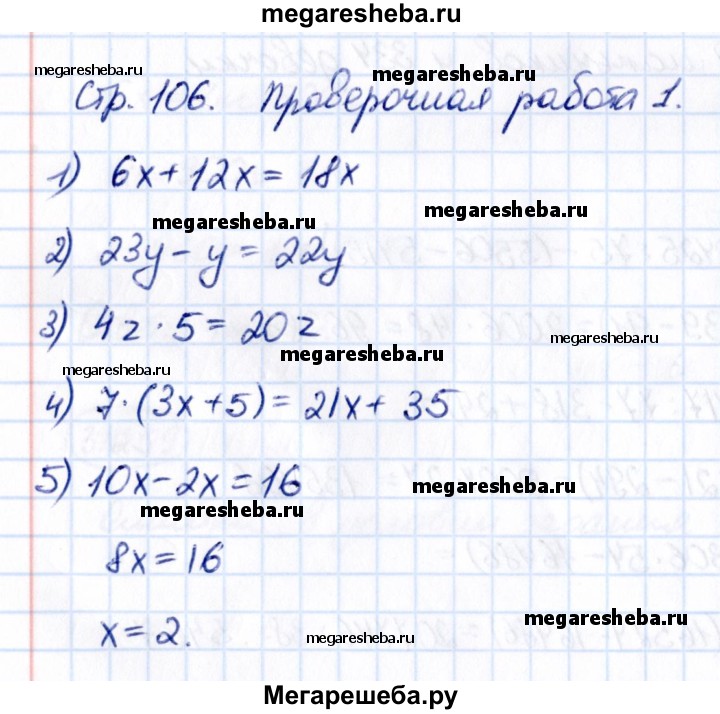 megaresheba.ru
megaresheba.ru
megaresheba.ru
Стр. 106. Проверочная работа 1.
1) 6x + 12x = 18x
megaresheba.ru
megaresheba.ru
2) 23y - y = 22y
3) 4z · 5 = 20z
megaresheba.ru
megaresheba.ru
4) 7·(3x + 5) = 21x + 35
5) 10x - 2x = 16
megaresheba.ru
megaresheba.ru
8x = 16
x = 2.
megaresheba.ru
megaresheba.ru
Мегарешеба.ру